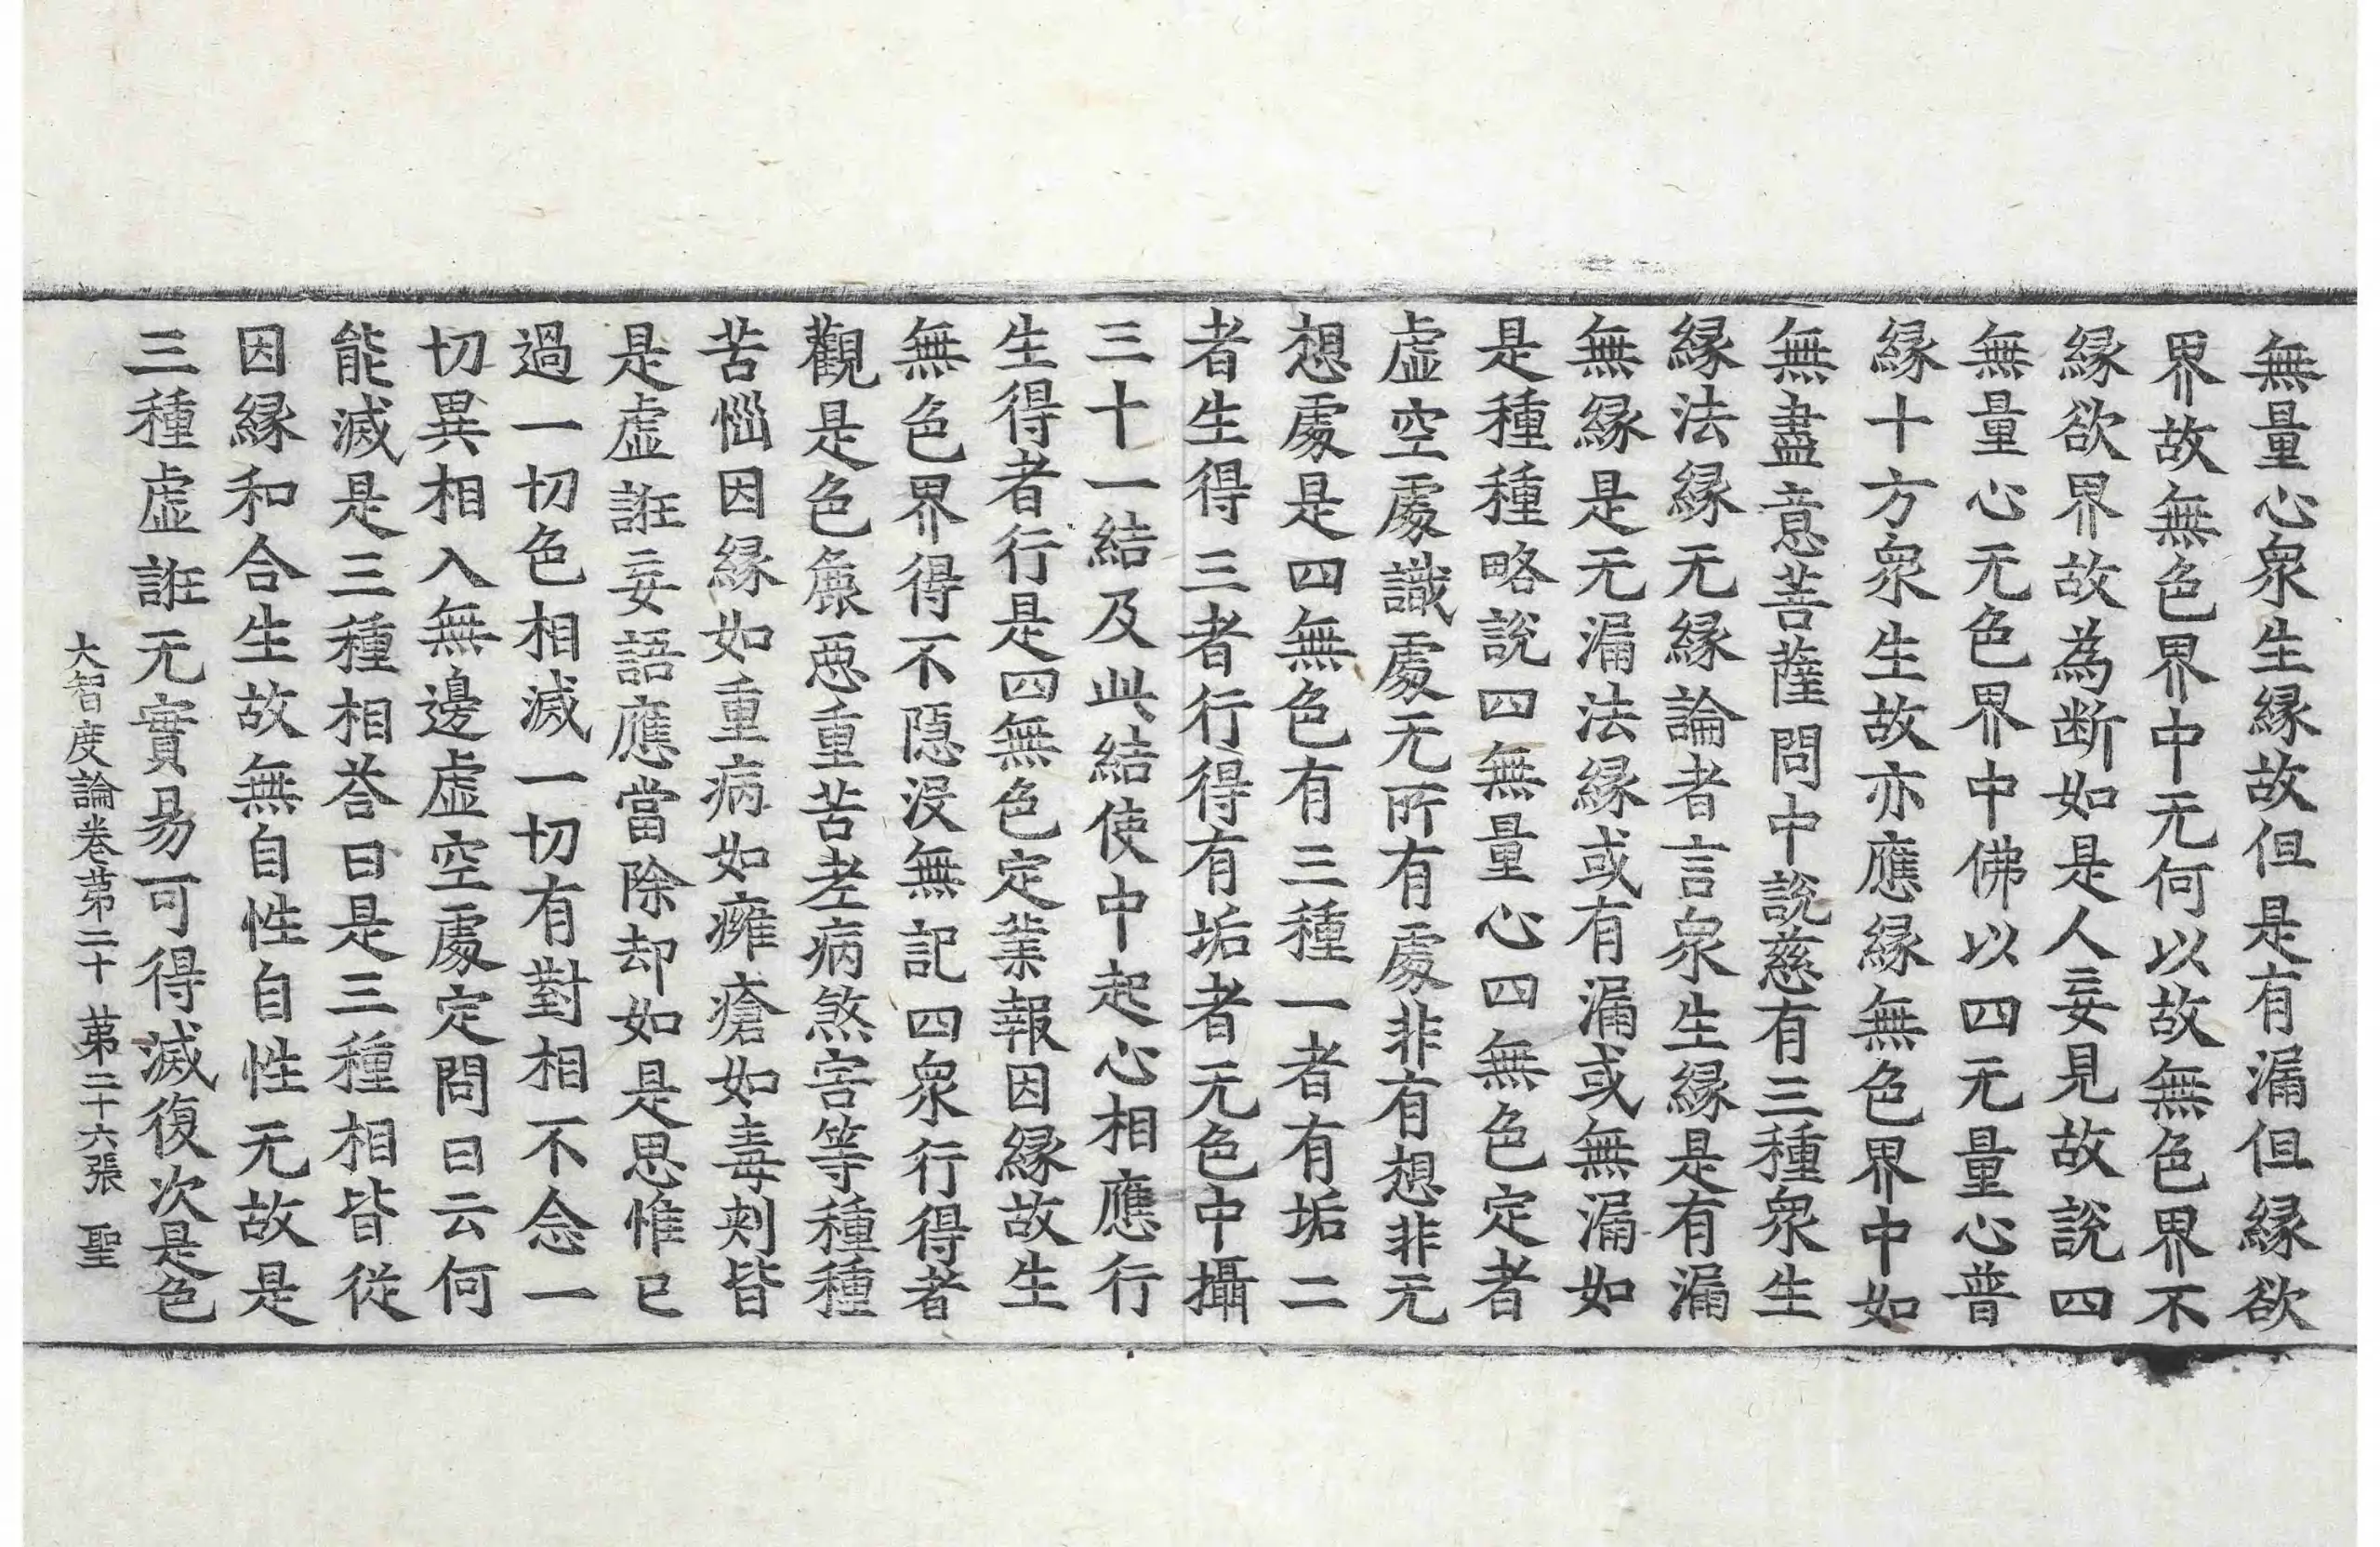 無量心衆生緣故但是有漏但緣欲
界故無色界中无何以故無色界不
緣欲界故為断如是人妄見故說四
無量心无色界中佛以四无量心普
緣十方衆生故亦應緣無色界中如
無盡意菩薩問中說慈有三種衆生
緣法緣无緣論者言衆生緣是有漏
無緣是无漏法緣或有漏或無漏如
是種種略說四無量心四無色定者
虛空處識處无所有處非有想非无
想處是四無色有三種一者有垢二
者生得三者行得有垢者无色中攝
三十一結及此結使中起心相應行
生得者行是四無色定業報因緣故生
無色界得不隱没無記四衆行得者
觀是色麁惡重苦老病煞害等種種
苦惱因緣如重病如癰瘡如毒刺皆
是虛誑妄語應當除却如是思惟已
過一切色相滅一切有對相不念一
切異相入無邊虛空處定問曰云何
能滅是三種相荅曰是三種相皆從
因緣和合生故無自性自性无故是
三種虛誑无實易可得滅復次是色
大智度論卷苐二十 苐二十六張 聖